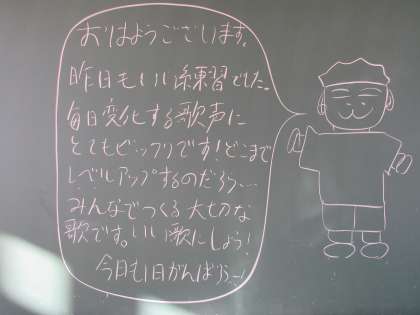 おはようございます。
昨日もいい練習でした。
毎日変化する歌声に
とてもビックリです!どこまで
レベルアップするのだろう…
みんなでつくる大切な
歌です。いい歌にしよう!
今日も1日がんばろう!